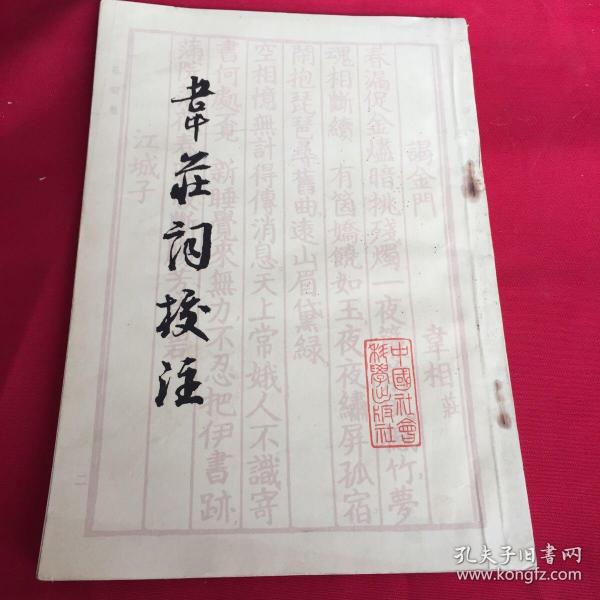 韋莊詞校注
謁金門
韋相莊
春漏促金燼暗挑殘燭一夜
竹夢
魂相斷續 有箇嬌饒如玉夜夜繡屏孤宿
閑抱琵琶尋舊曲遠山眉黛綠
空相憶無計得傳消息天上常娥人不識寄
書何處覓 新睡覺來無力不忍把伊書跡
江城子
二
中國社會
科學出版社
孔夫子旧书网
www.kongfz.com